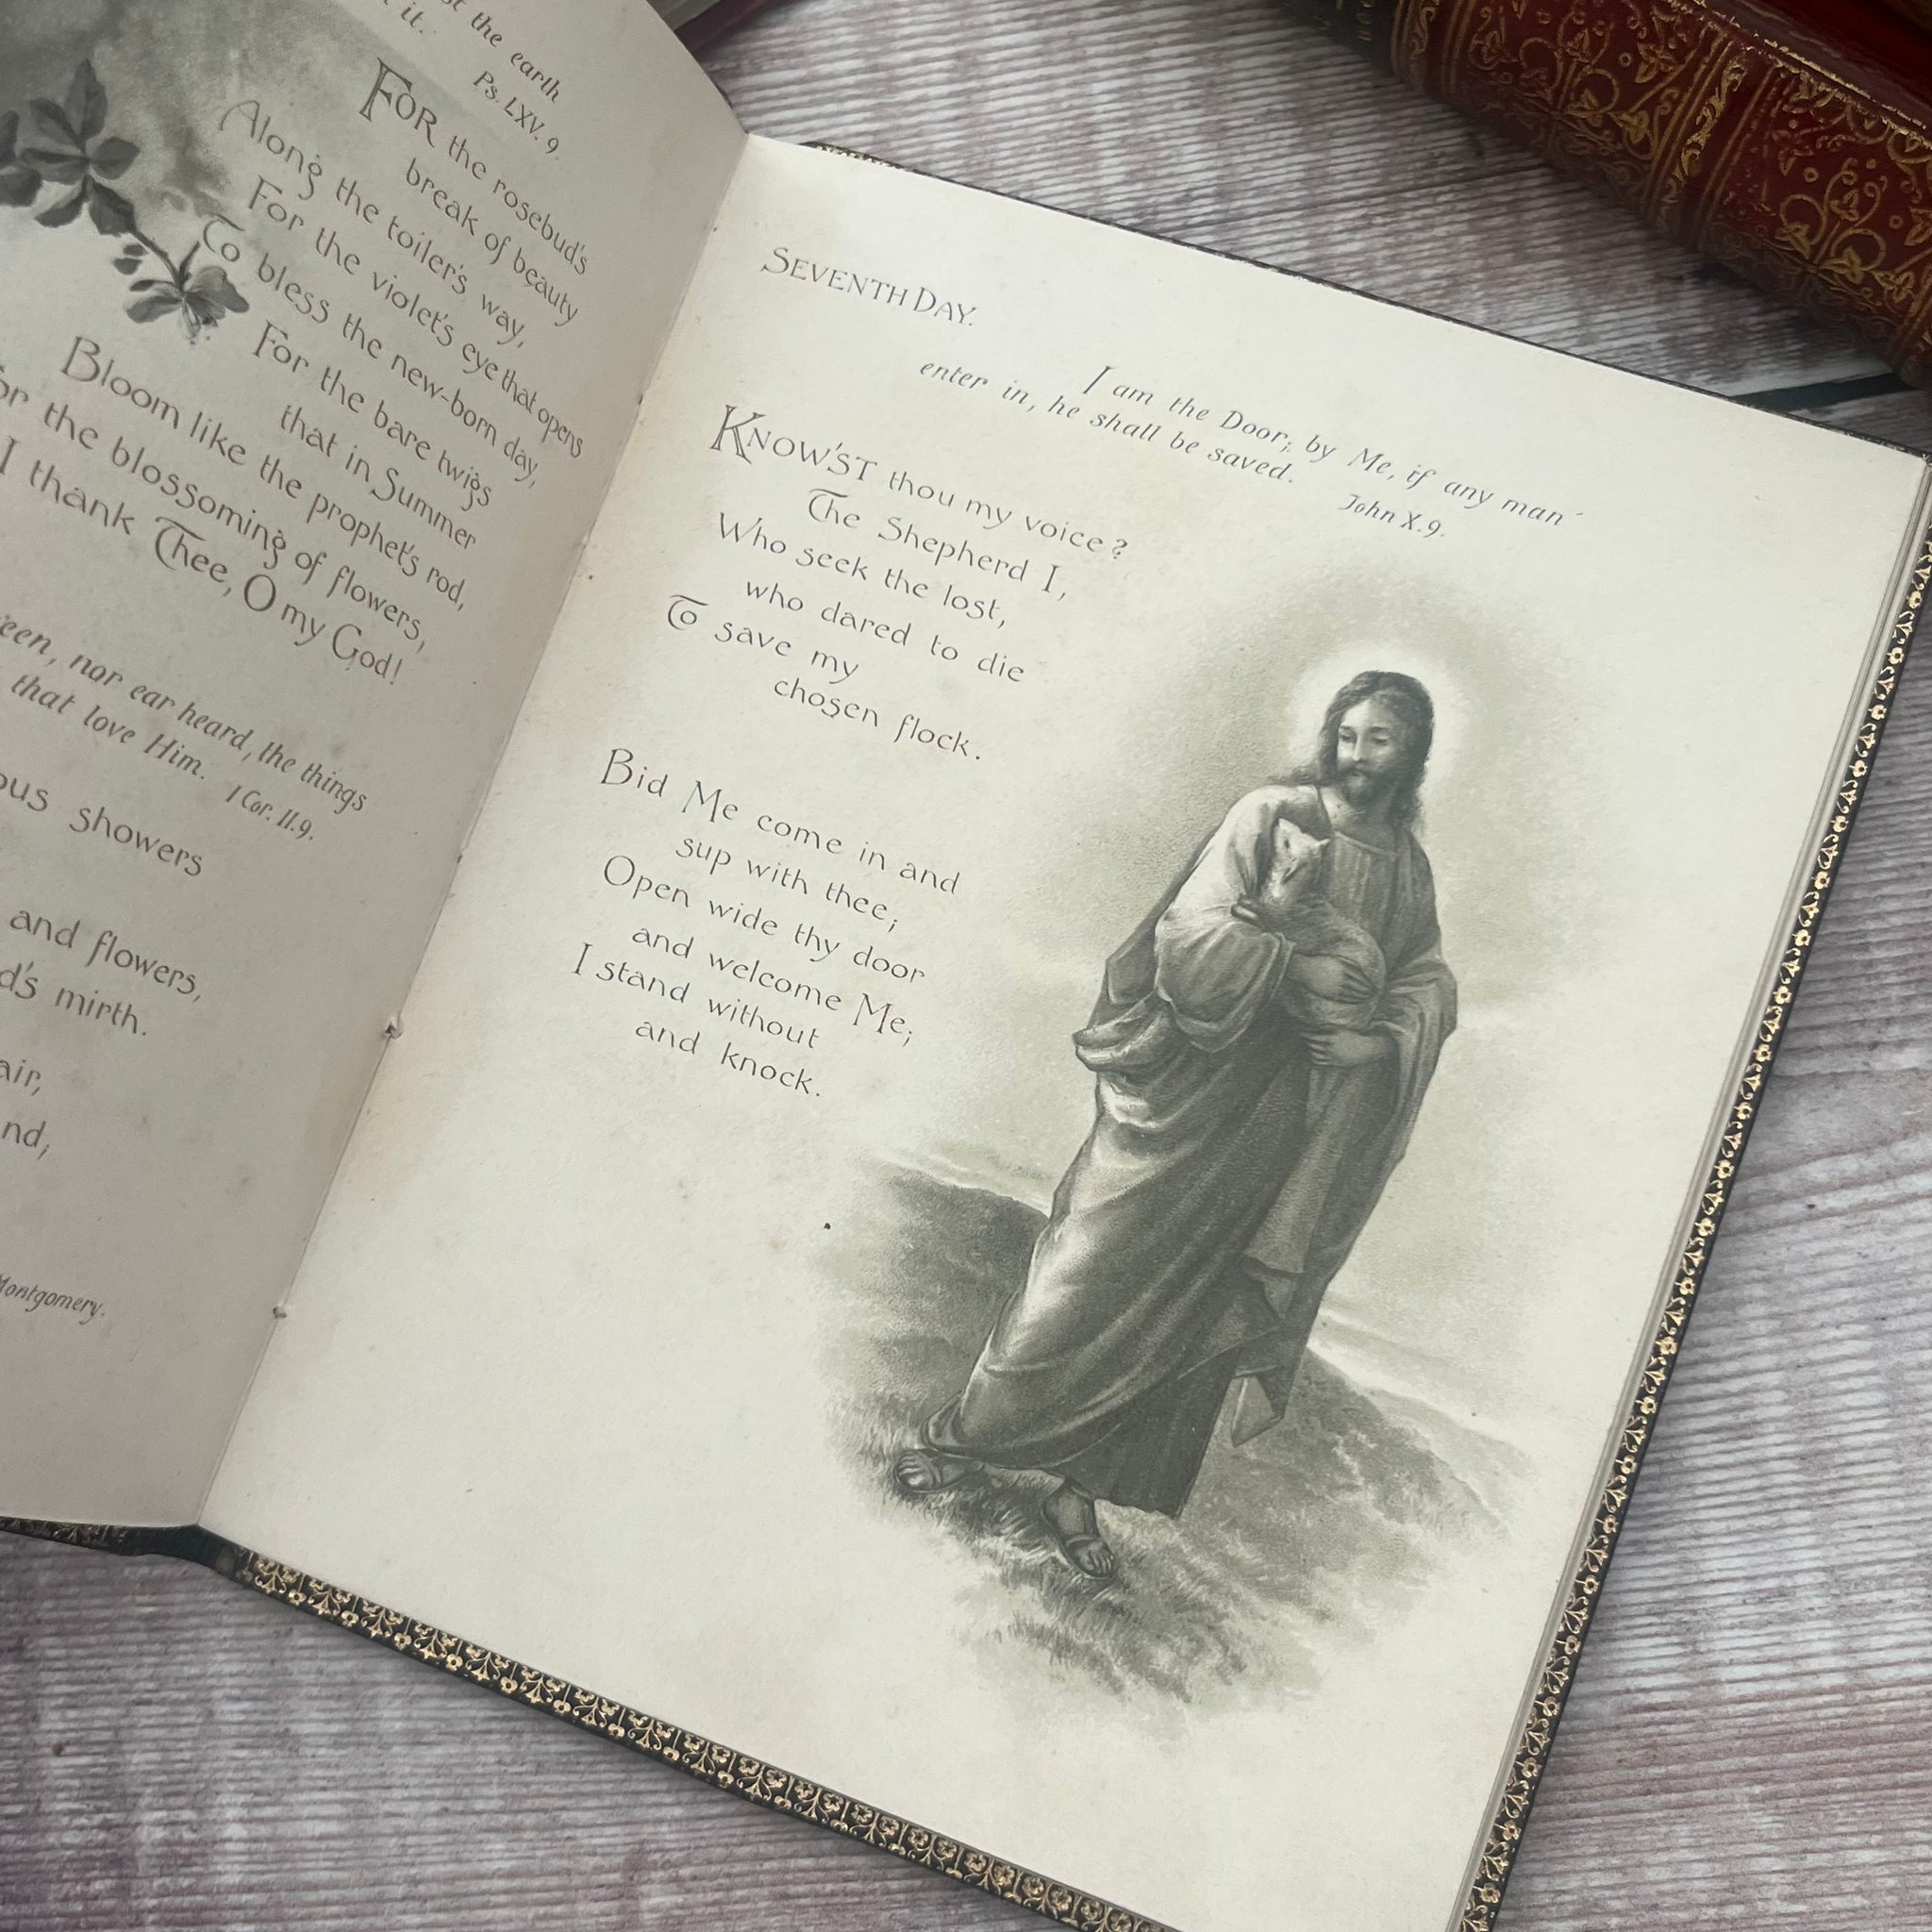 the earth
it.
Ps. LXV. 9.
FOR the rosebud's
break of beauty
Along the toiler's way,
For the violet's eye that opens
To bless the new-born day,
For the bare twigs
that in Summer
Bloom like the prophet's rod,
the blossoming of flowers,
I thank Thee, O my God!
nor ear heard, the things
that love Him.
I Cor. II.9.
showers
and flowers,
mirth.
Montgomery.
SEVENTH DAY.
I am the Door; by Me, if any man
enter in, he shall be saved.
John X.9.
KNOW'ST thou my voice?
The Shepherd I,
Who seek the lost,
who dared to die
To save my
chosen flock.
Bid Me come in and
sup with thee;
Open wide thy door
and welcome Me;
I stand without
and knock.